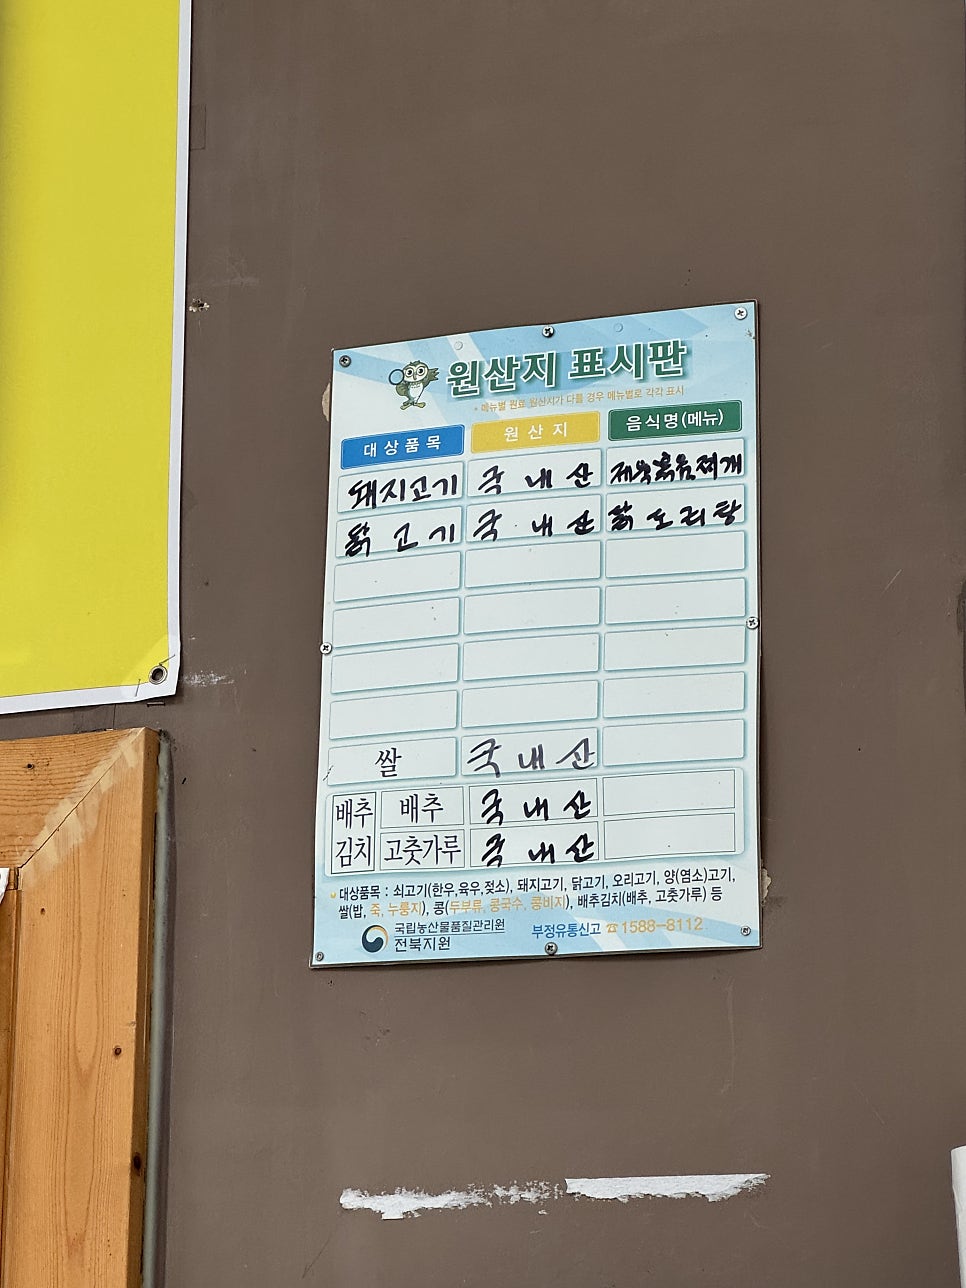 원산지 표시판
* 메뉴별 원료 원산지가 다를 경우 메뉴별로 각각 표시
대상품목 원산지 음식명(메뉴)
돼지고기 국내산 제육볶음찌개
닭고기 국내산 닭도리탕
쌀 국내산
배추김치 배추 국내산
고춧가루 국내산
대상품목 : 쇠고기(한우,육우,젖소), 돼지고기, 닭고기, 오리고기, 양(염소)고기,
쌀(밥, 죽, 누룽지), 콩(두부류, 콩국수, 콩비지), 배추김치(배추, 고춧가루) 등
국립농산물품질관리원
전북지원
부정유통신고 ☎1588-8112